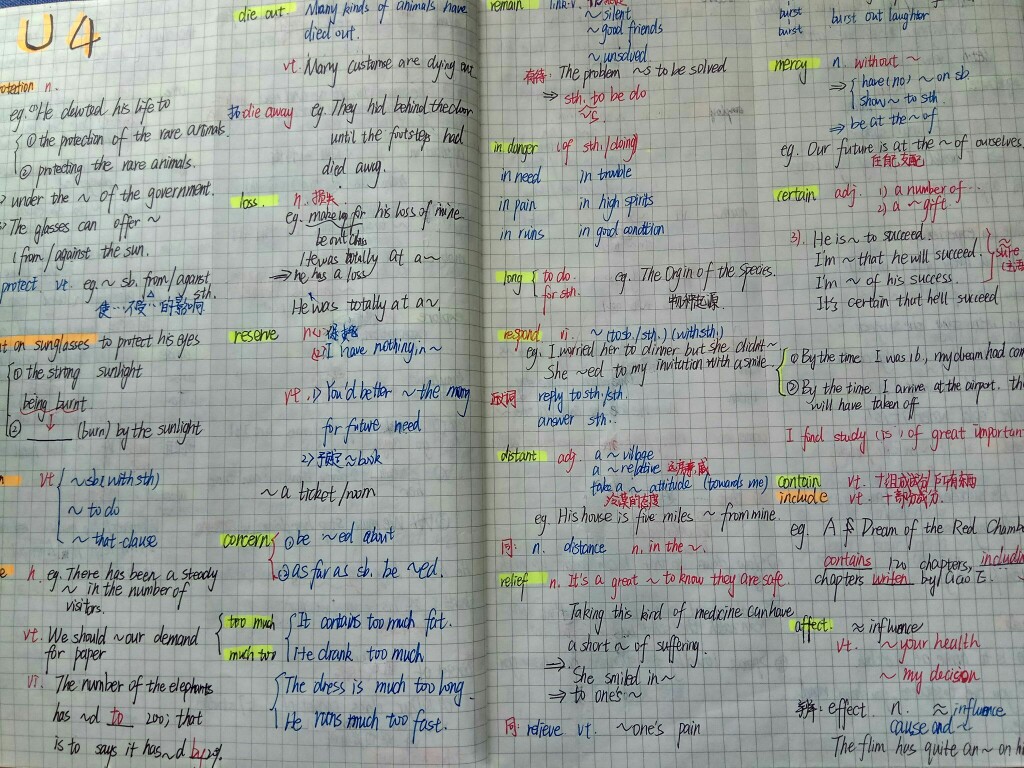 U4
otection n.
eg. He devoted his life to
① the protection of the rare animals.
② protecting the rare animals.
under the ~ of the government.
The glasses can offer ~
from/against the sun.
protect vt. eg. ~ sb. from/against sth.
使…不受…的影响
t on sunglasses to protect his eyes
① the strong sunlight
being burnt
② ____ (burn) by the sunlight
vt ~ sb (with sth)
~ to do
~ that-clause
n. eg. There has been a steady
~ in the number of
visitors.
vt. We should ~ our demand
for paper
vi. The number of the elephants
has ~d to 200; that
is to says it has ~d by
die out. Many kinds of animals have
died out.
vt. Many custome are dying out
die away eg. They hid behind the door
until the footstep had
died awy.
loss. n. 损失
eg. make up for his loss of mine
be at a loss
He was totally at a ~
⇒ he has a loss
He was totally at a ~.
reserve n.
I have nothing in ~
vt. 1) You'd better ~ the mony
for future need
2) 预定 ~ book
~ a ticket/room
concern ① be ~ed about
② as far as sb. be ~ed.
too much It contains too much fat.
He drank too much
much too The dress is much too long.
He runs much too fast.
remain link-v.
~ silent
~ good friends
~ unsolved
有待: The problem ~s to be solved
⇒ sth. to be do
in danger (of sth./doing)
in need in trouble
in pain in high spirits
in runs in good condtion
long to do.
for sth.
eg. The Orgin of the Species.
物种起源
respond vi. ~ (to sb./sth.) (with sth.)
eg. I worried her to dinner but she didn't ~
She ~ed to my invitation with a smile.
reply to sth./sth.
answer sth..
distant adj. a ~ village
a ~ relative 远房亲戚
take a ~ attitude (towards me)
冷漠的态度
eg. His house is five miles ~ from mine.
同: n. distance n. in the ~.
relief n. It's a great ~ to know they are safe.
Taking this kind of medicine can have
a short ~ of suffering.
⇒ She smiled in ~
⇒ to one's ~
同 relieve vt. ~ one's pain
burst burst out laughtor
burst
mercy n. without ~
⇒ have (no) ~ on sb.
show ~ to sth
⇒ be at the ~ of
eg. Our future is at the ~ of ourselves.
certain adj. 1) a number of…
2) a ~ gift.
3). He is ~ to succeed.
I'm ~ that he will succeed.
I'm ~ of his success.
It's certain that he'll succeed
≈ sure
① By the time I was 1b, my dream had com
② By the time I arrive at the airport. the
will have taken off
I find study (is) of great importan
contain vt.
include vt.
eg. A Dream of the Red Chamb
contains 120 chapters, includin
chapters writen by Gao E.
affect. ≈ influence
vt. ~ your health
~ my decision
effect. n. ≈ influence
cause and ~
The flim has quite an ~ on h